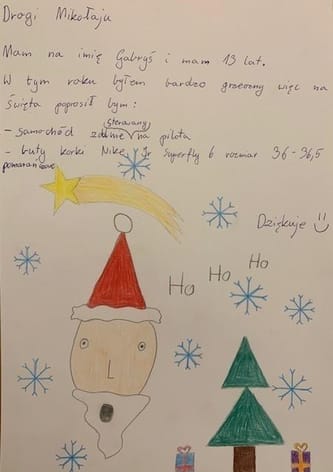 Drogi Mikołaju
Mam na imię Gabryś i mam 13 lat.
W tym roku byłem bardzo grzeczny więc na
święta poprosił bym:
- samochód zdalnie sterowany na pilota
- buty korki Nike Jr superfly 6 rozmar 36-36,5
pomarańczowe
Dziękuje
Ho Ho Ho